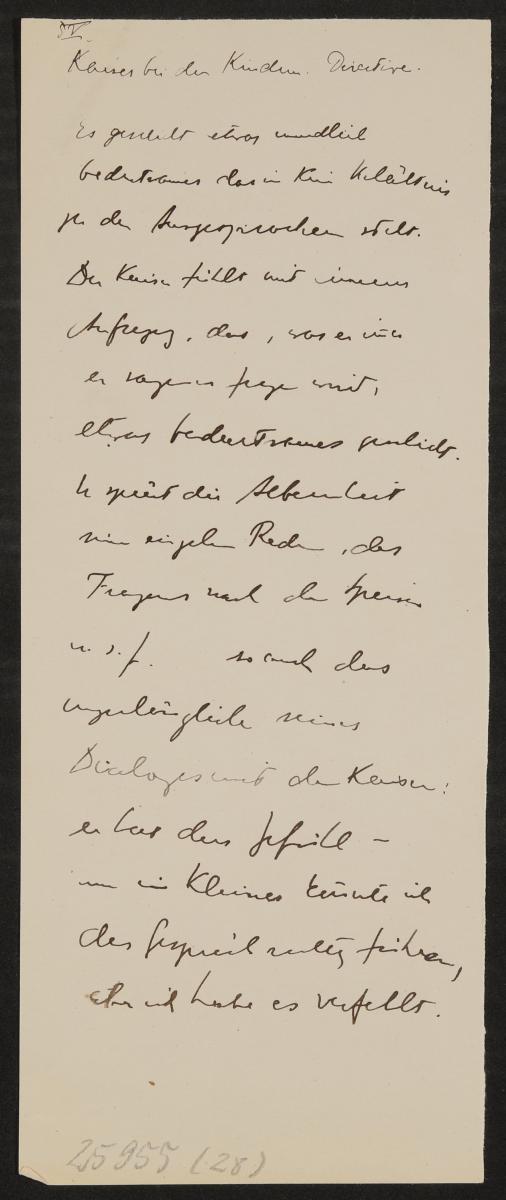 IV.
Kaiser bei den Kindern. Directive.
Es geschieht etwas unendlich
bedeutsames das in kein Verhältnis
zu den Ausgesprochenen steht.
Der Kaiser fühlt mit innerer
Aufregung, dass, was er
er sagen u fragen wird,
etwas bedeutsames geschieht.
Er spürt die Albernheit
seiner einzelnen Reden, des
Fragens nach den Speisen
u. s. f. so auch das
unzulängliche seines
Dialoges mit der Kaiserin:
er hat das Gefühl –
um ein Kleines könnte ich
das Gespräch richtig führen,
aber ich habe es verfehlt.
25955 (28)